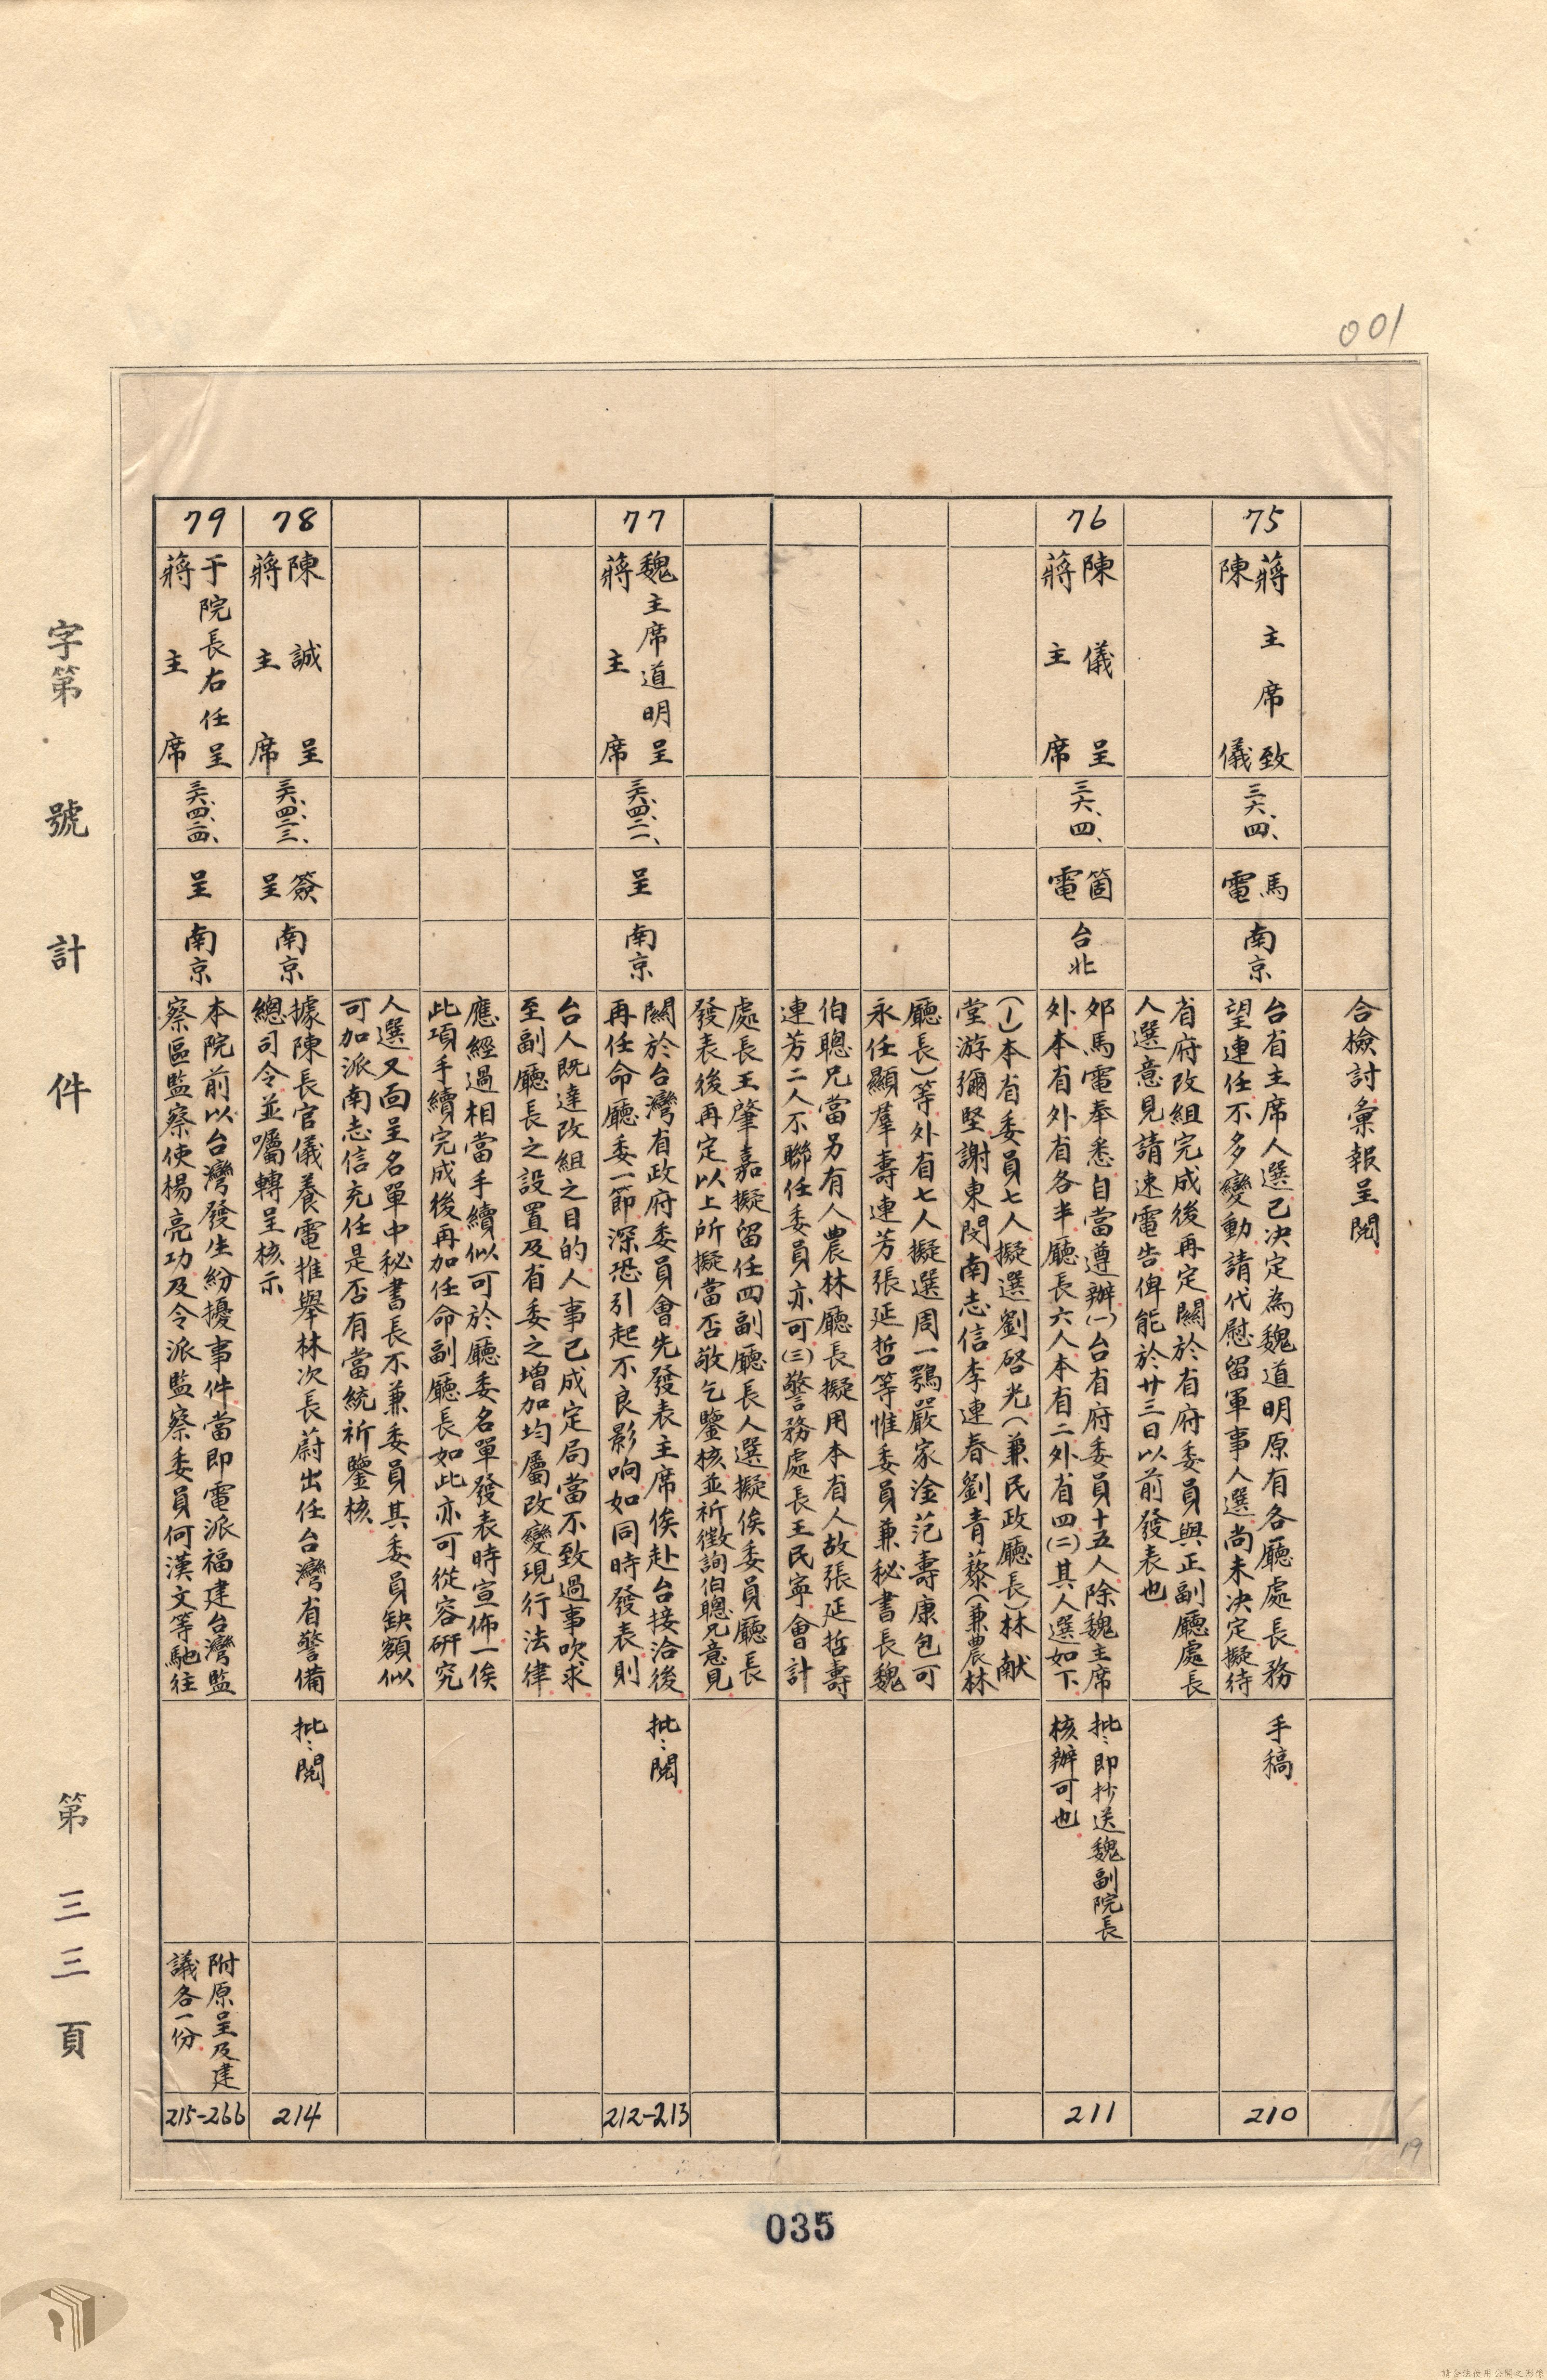 001
合檢討彙報呈閱
75
蔣主席致
陳儀
三六、四、
馬
電
南京
台省主席人選已決定為魏道明原有各廳處長務
望連任不多變動請代慰留軍事人選尚未決定擬待
省府改組完成後再定關於省府委員與正副廳處長
人選意見請速電告俾能於廿三日以前發表也
手稿
210
76
陳儀呈
蔣主席
三六、四、
箇
電
台北
郊馬電奉悉自當遵辦(一)台省府委員十五人除魏主席
外本省外省各半廳長六人本省二外省四(二)其人選如下
(1)本省委員七人擬選劉啓光(兼民政廳長)林献
堂游彌堅謝東閔南志信李連春劉青藜(兼農林
廳長)等外省七人擬選周一鶚嚴家淦范壽康包可
永任顯羣壽連芳張延哲等惟委員兼秘書長魏
伯聰兄當另有人農林廳長擬用本省人故張延哲壽
連芳二人不聯任委員亦可(三)警務處長王民寧會計
處長王肇嘉擬留任四副廳長人選擬俟委員廳長
發表後再定以上所擬當否敬乞鑒核並祈徵詢伯聰兄意見
批：即抄送魏副院長
核辦可也
211
77
魏主席道明呈
蔣主席
三六、四、二一、
呈
南京
關於台灣省政府委員會先發表主席俟赴台接洽後
再任命廳委一節深恐引起不良影响如同時發表則
台人既達改組之目的人事已成定局當不致過事吹求
至副廳長之設置及省委之增加均屬改變現行法律
應經過相當手續似可於廳委名單發表時宣佈一俟
此項手續完成後再加任命副廳長如此亦可從容研究
人選又面呈名單中秘書長不兼委員其委員缺額似
可加派南志信充任是否有當統祈鑒核
批：閱
212-213
78
陳誠呈
蔣主席
三六、四、二三、
簽
呈
南京
據陳長官儀養電推舉林次長蔚出任台灣省警備
總司令並囑轉呈核示
批：閱
214
79
于院長右任呈
蔣主席
三六、四、二四、
呈
南京
本院前以台灣發生紛擾事件當即電派福建台灣監
察區監察使楊亮功及令派監察委員何漢文等馳往
附原呈及建
議各一份
215-266
字第號計件
第三三頁
19
035
請合法使用公開之影像